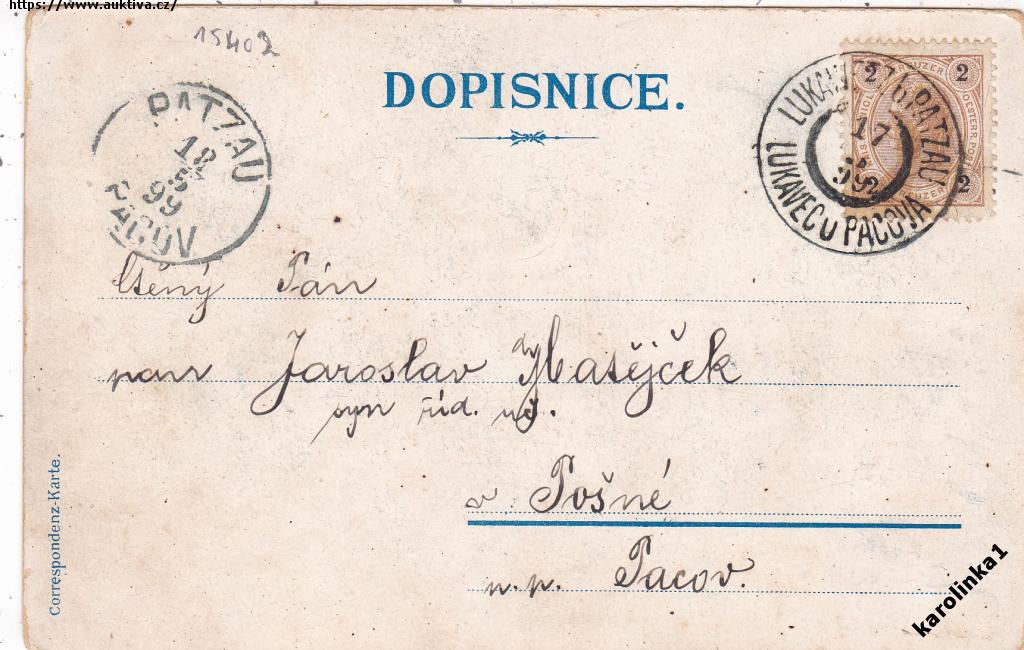 https://www.auktiva.cz/
15402
DOPISNICE.
PATZAU
18
5
99
PACOV
LUKAWETZ b. PATZAU
17
5
99
LUKAVEC U PACOVA
2
2
2
KREUZER
OESTERR. POST
Ctěný Pán
pan Jaroslav Matějček
syn říd. uč.
v Pošné
n. p. Pacov.
Correspondenz-Karte.
karolinka1